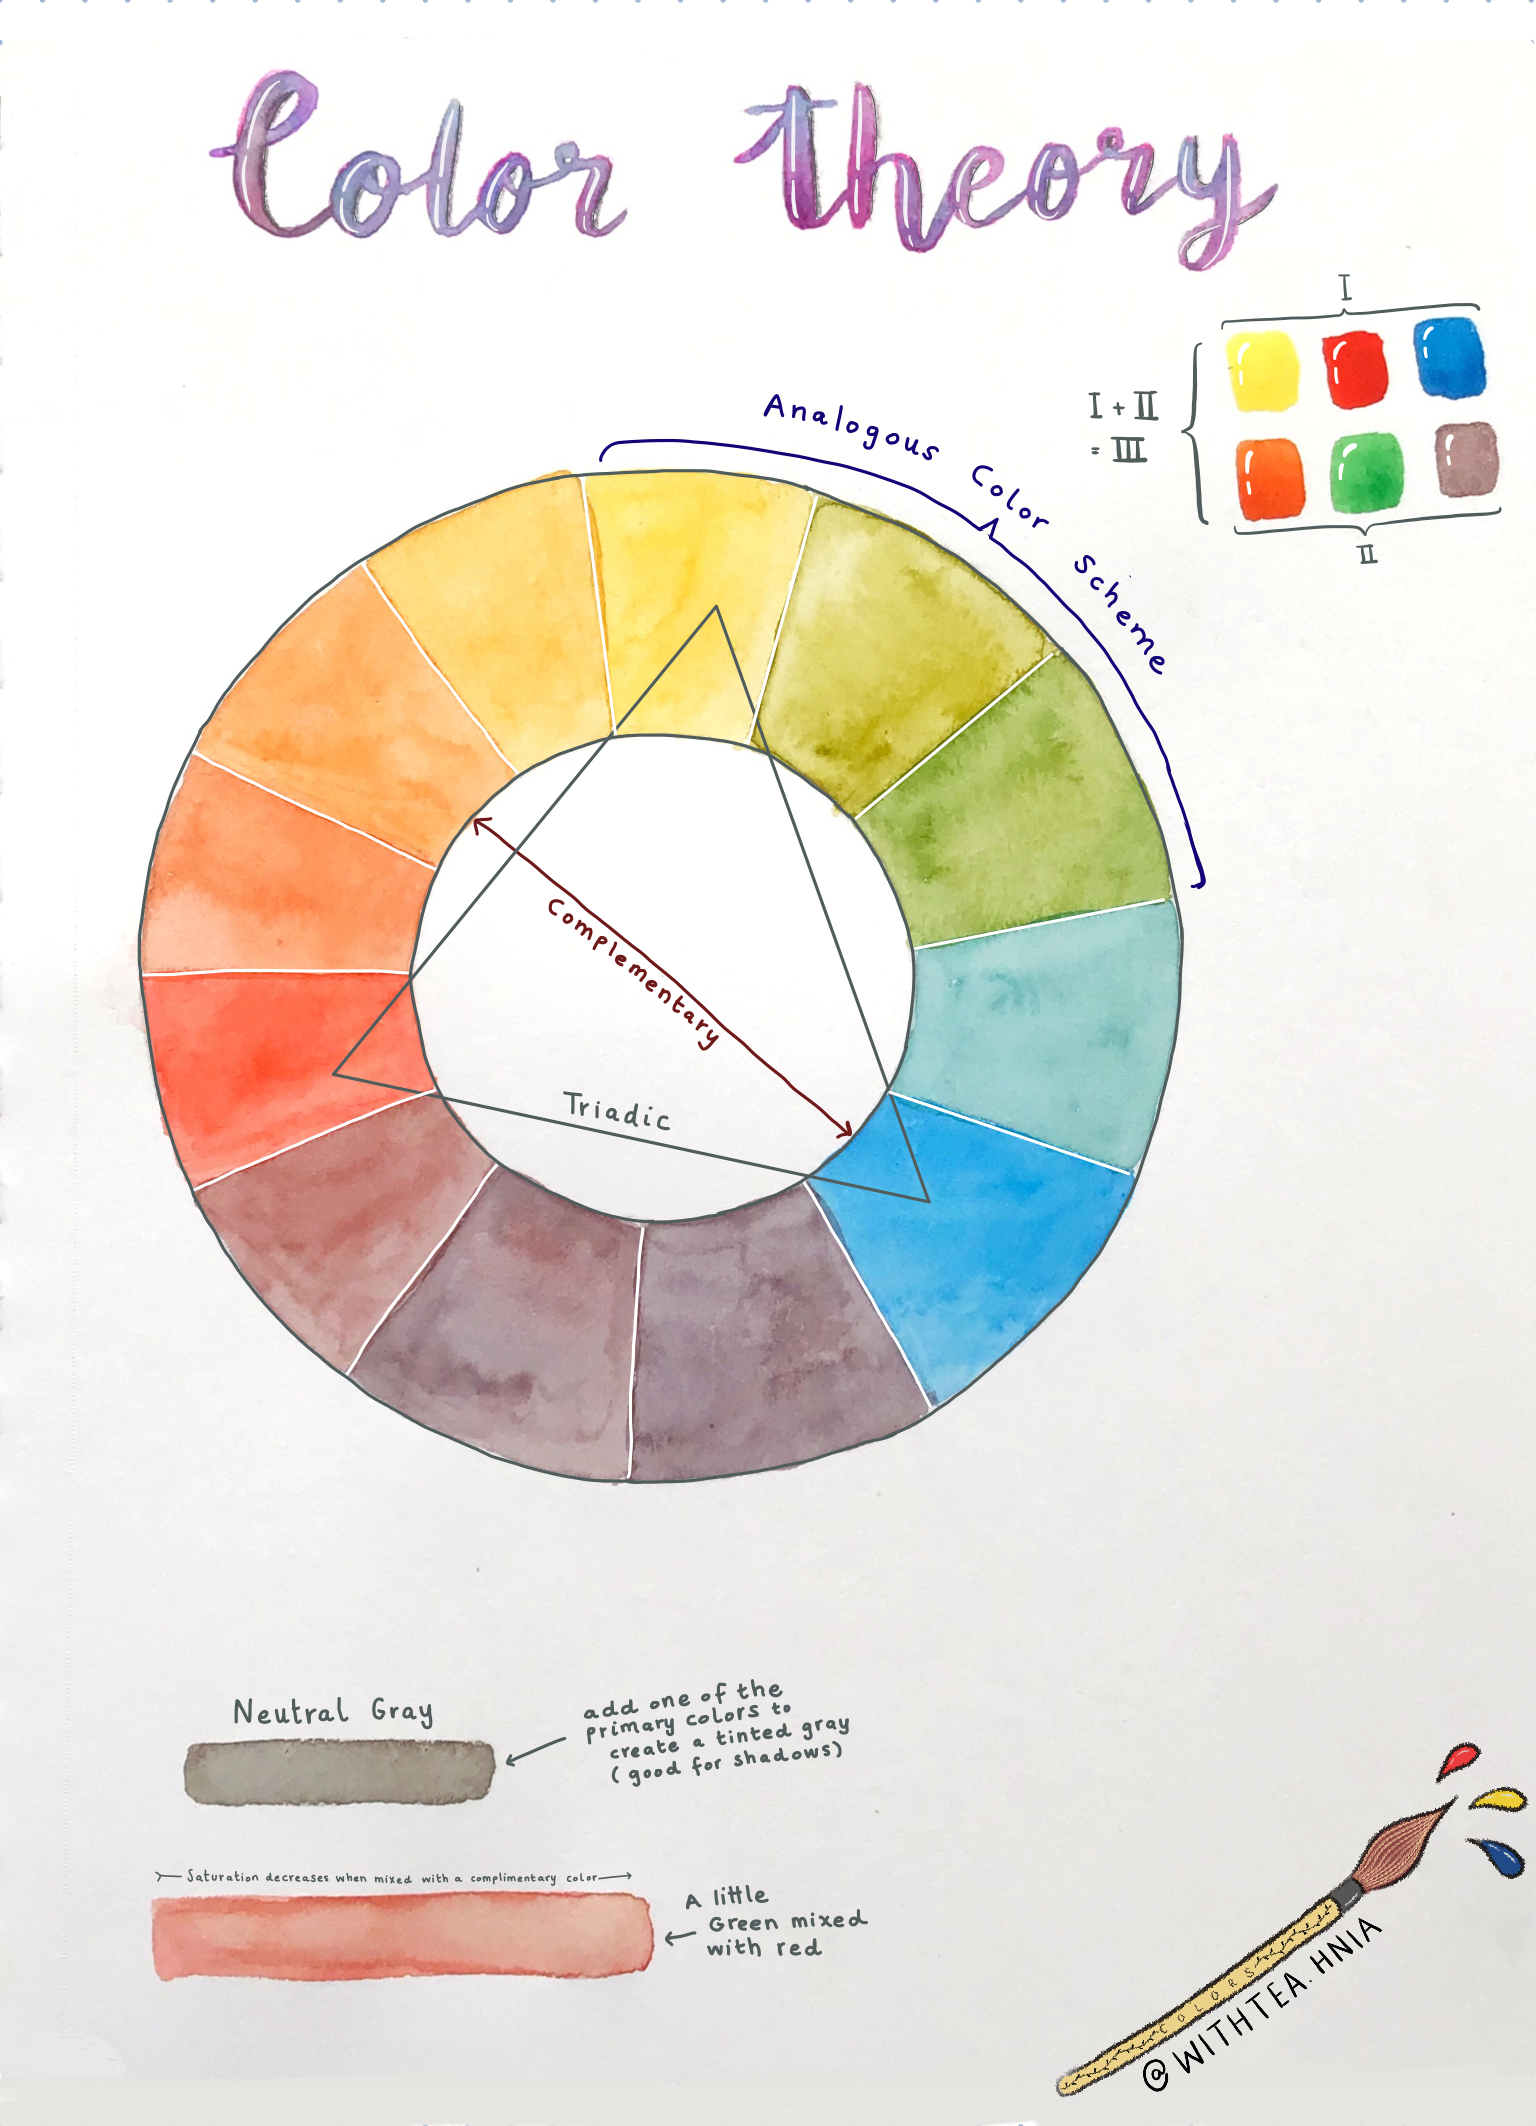 Color Theory
I
I + II
= III
II
Analogous Color Scheme
Complementary
Triadic
Neutral Gray
add one of the
primary colors to
create a tinted gray
(good for shadows)
Saturation decreases when mixed with a complimentary color
A little
Green mixed
with red
COLORS
@WITHTEA.HNIA